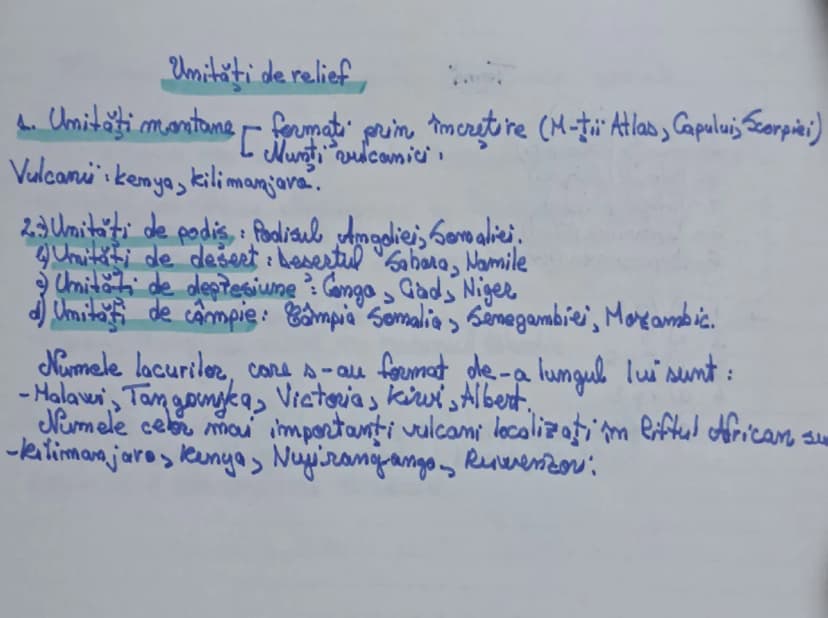 Unități de relief
1. Unități montane [ formați prin încrețire (M-ții Atlas, Capului, Scorpiei)
Munți vulcanici.
Vulcanii: Kenya, Kilimanjara.
2.) Unități de podiș: Podisul Angoliei, Somaliei.
Unități de deșert: Desertul Sahara, Namile
c) Unități de depresiune: Congo, Ciad, Niger
d) Unități de câmpie: Câmpia Somalia, Senegambiei, Mozambic.
Numele lacurilor care s-au format de-a lungul lui sunt:
- Malawi, Tanganyka, Victoria, Kiwi, Albert.
Numele celor mai importanți vulcani localizați în Riftul African su
- Kilimanjaro, Kenya, Nyirangango, Ruwenzori.